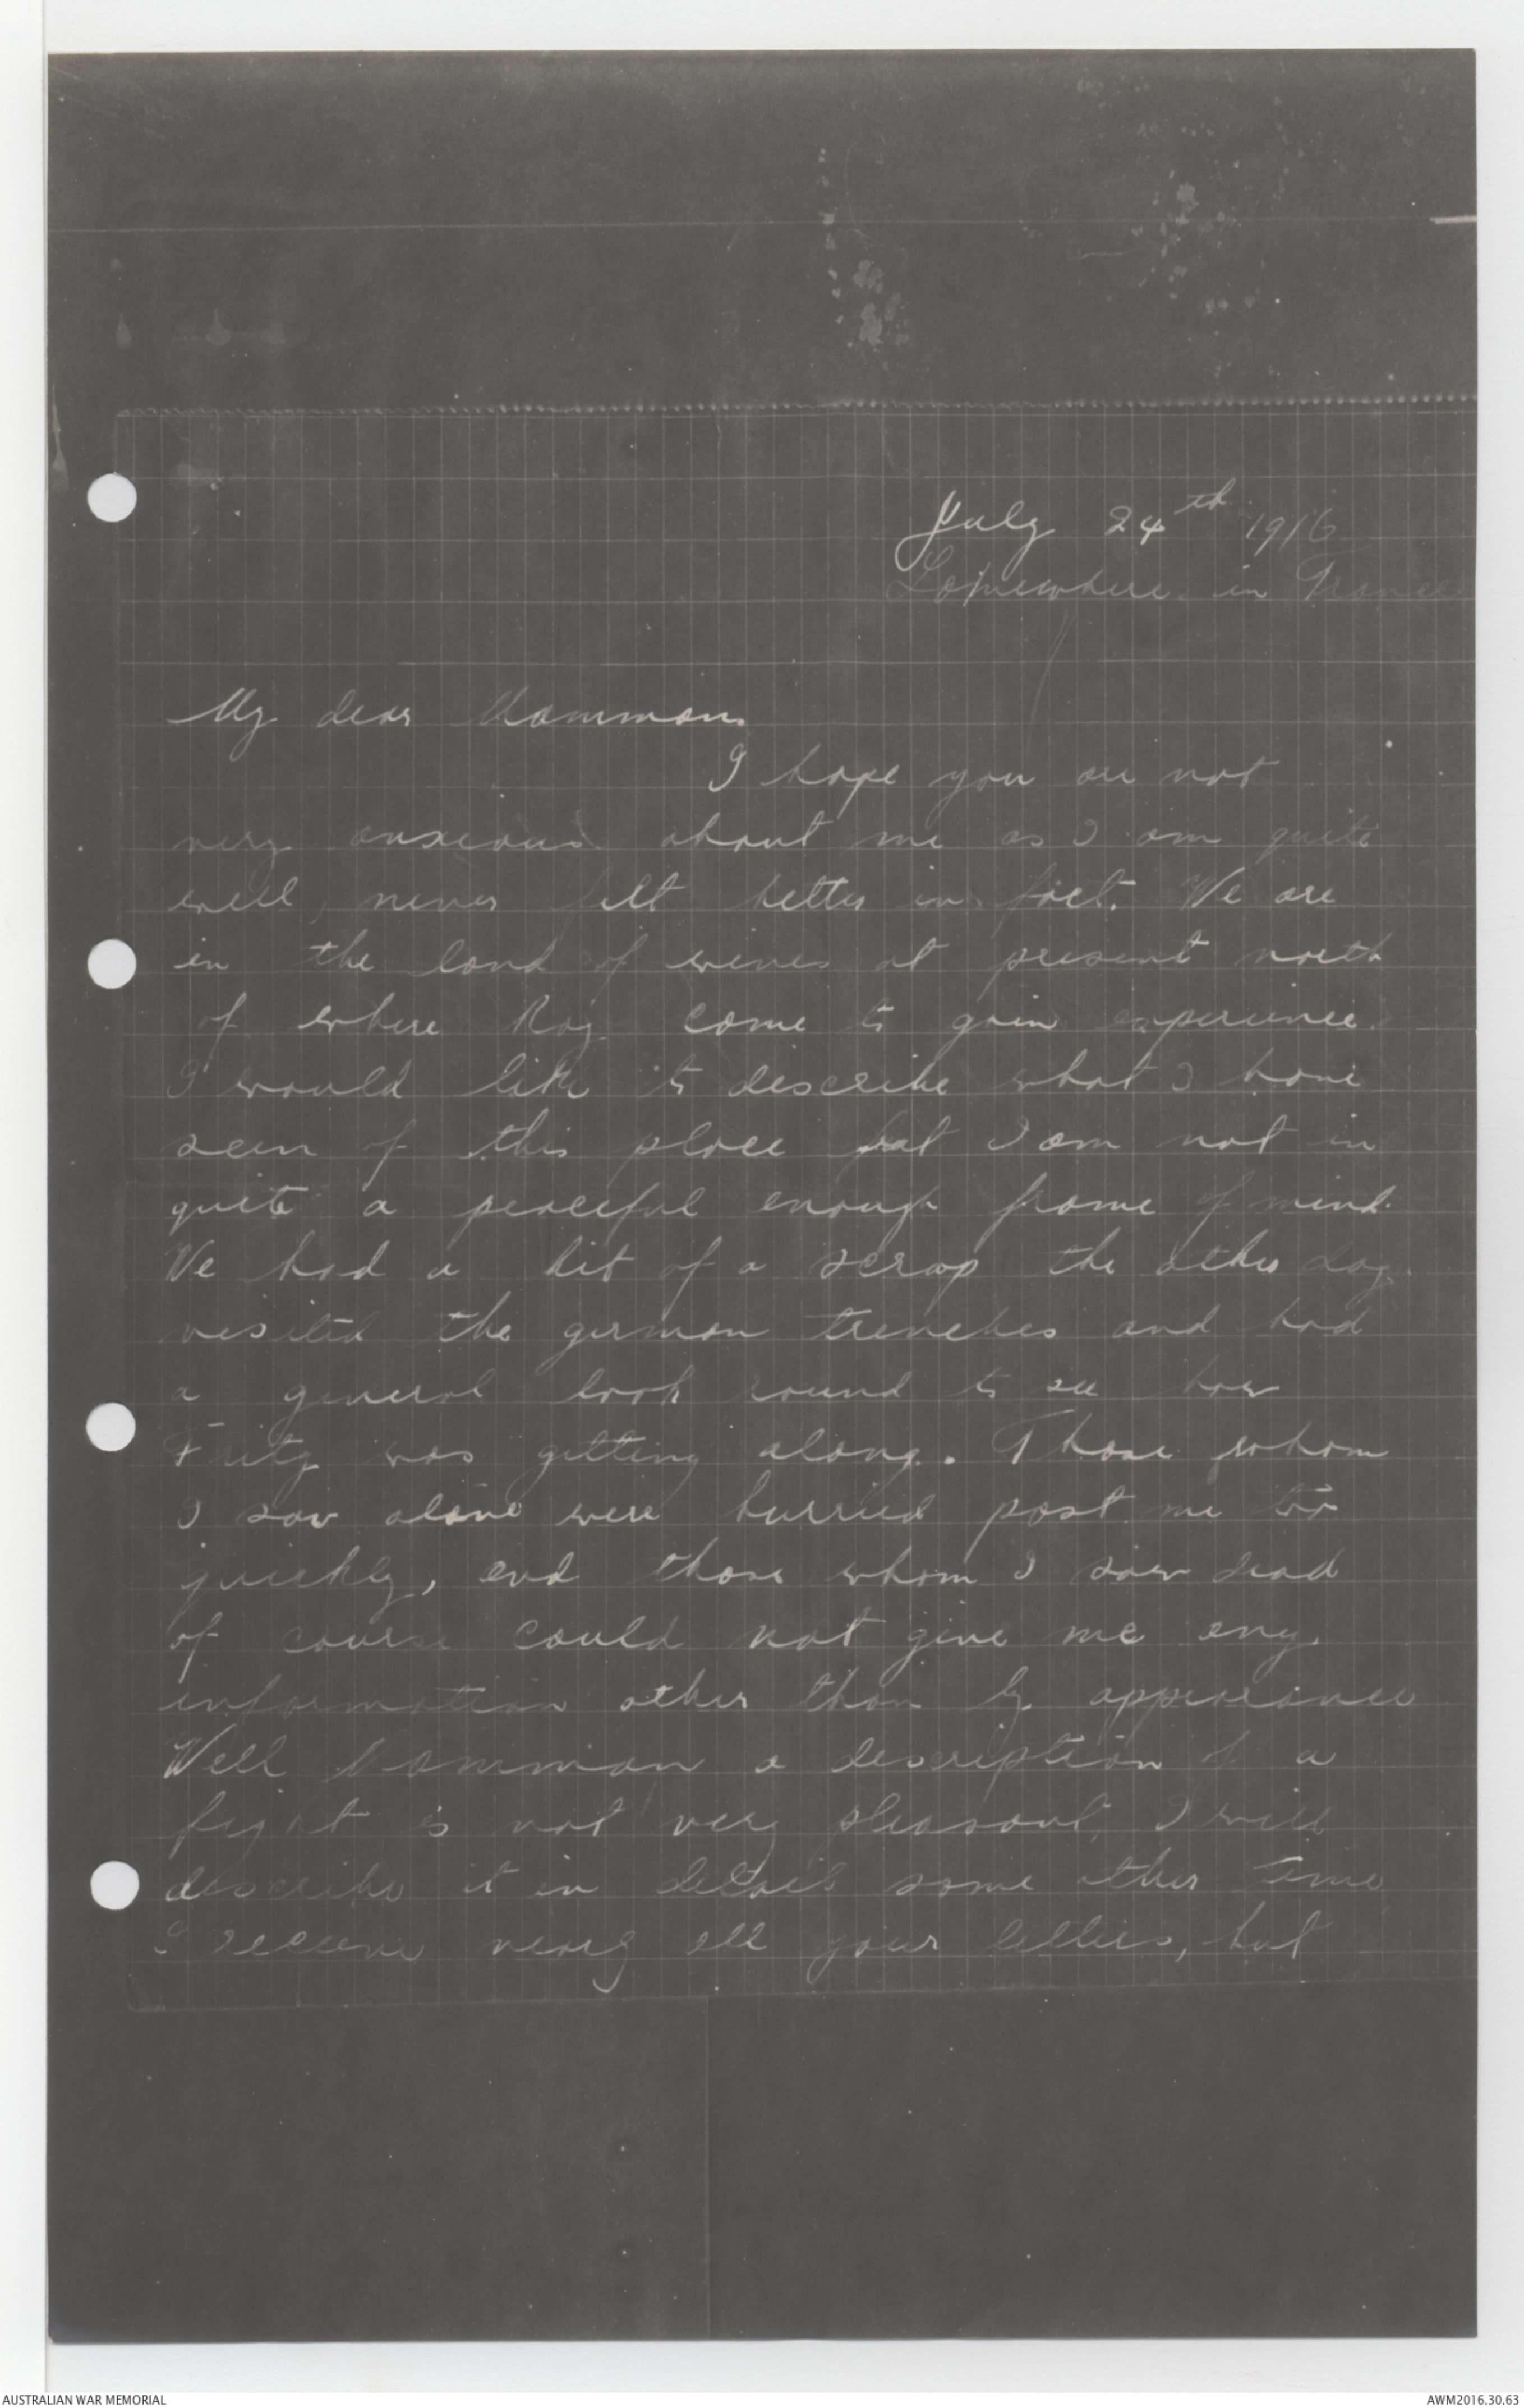 July 24th 1916
Somewhere in France
My dear Mamman.
I hope you are not
very anxious about me as I am quite
well, never felt better in fact. We are
in the land of wines at present north
of where Roy came to gain experience.
I would like to describe what I have
seen of this place but I am not in
quite a peaceful enough frame of mind.
We had a bit of a scrap the other day
visited the german trenches and had
a general look round to see how
Fritz was getting along. Those whom
I saw alive were hurried past me too
quickly, and those whom I saw dead
of course could not give me any
information other than by appearance
Well Mamman a description of a
fight is not very pleasant, I will
describe it in detail some other time
I receive nearly all your letters, but
AUSTRALIAN WAR MEMORIAL
AWM2016.30.63